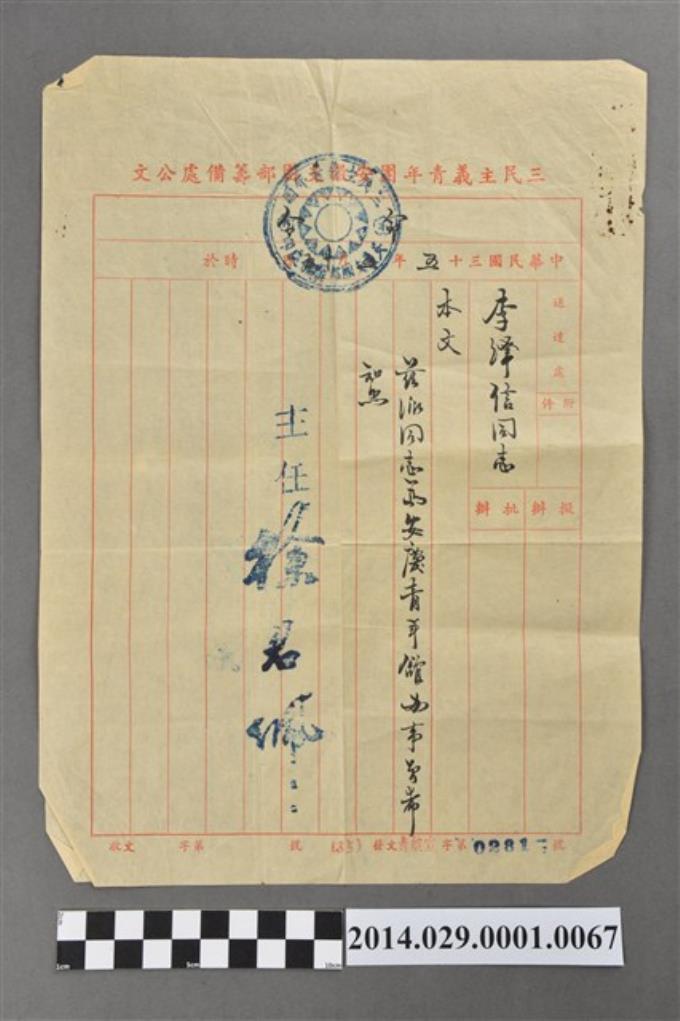 三民主義青年團安徽支團部籌備處公文
命令
中華民國三十五年 月 時於
送達處
附件
擬辦
批辦
李繹信同志
本文
茲派同志為安慶青年館幹事  希
知照
主任徐君佩
發文 字第02817號
收文 字第 號
1cm
5cm
10cm
2014.029.0001.0067